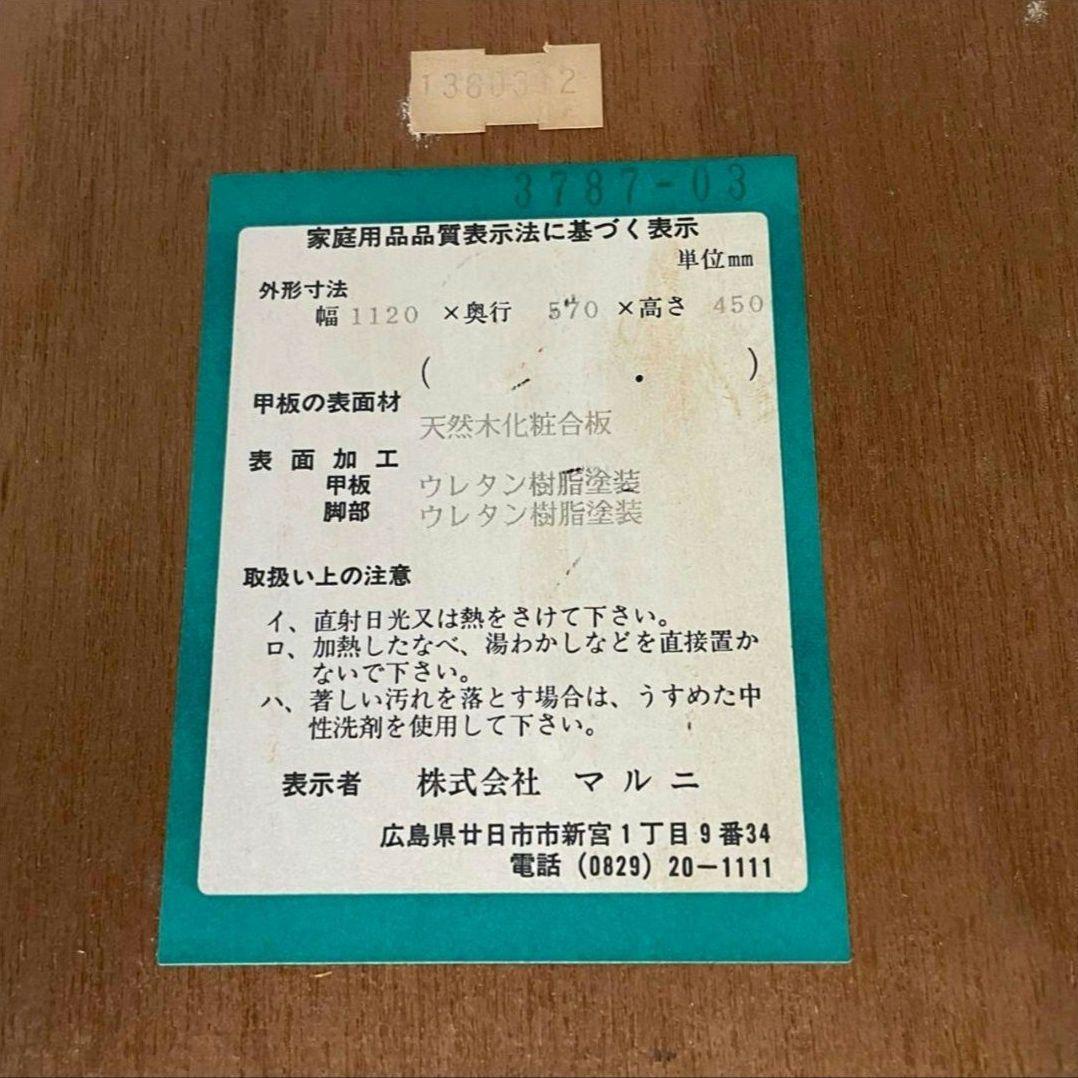 1380312
3787-03
家庭用品品質表示法に基づく表示
単位mm
外形寸法
幅 1120 ×奥行 570 ×高さ 450
( . )
甲板の表面材
天然木化粧合板
表面加工
甲板 ウレタン樹脂塗装
脚部 ウレタン樹脂塗装
取扱い上の注意
イ、直射日光又は熱をさけて下さい。
ロ、加熱したなべ、湯わかしなどを直接置か
ないで下さい。
ハ、著しい汚れを落とす場合は、うすめた中
性洗剤を使用して下さい。
表示者 株式会社 マルニ
広島県廿日市市新宮1丁目9番34
電話 (0829) 20-1111